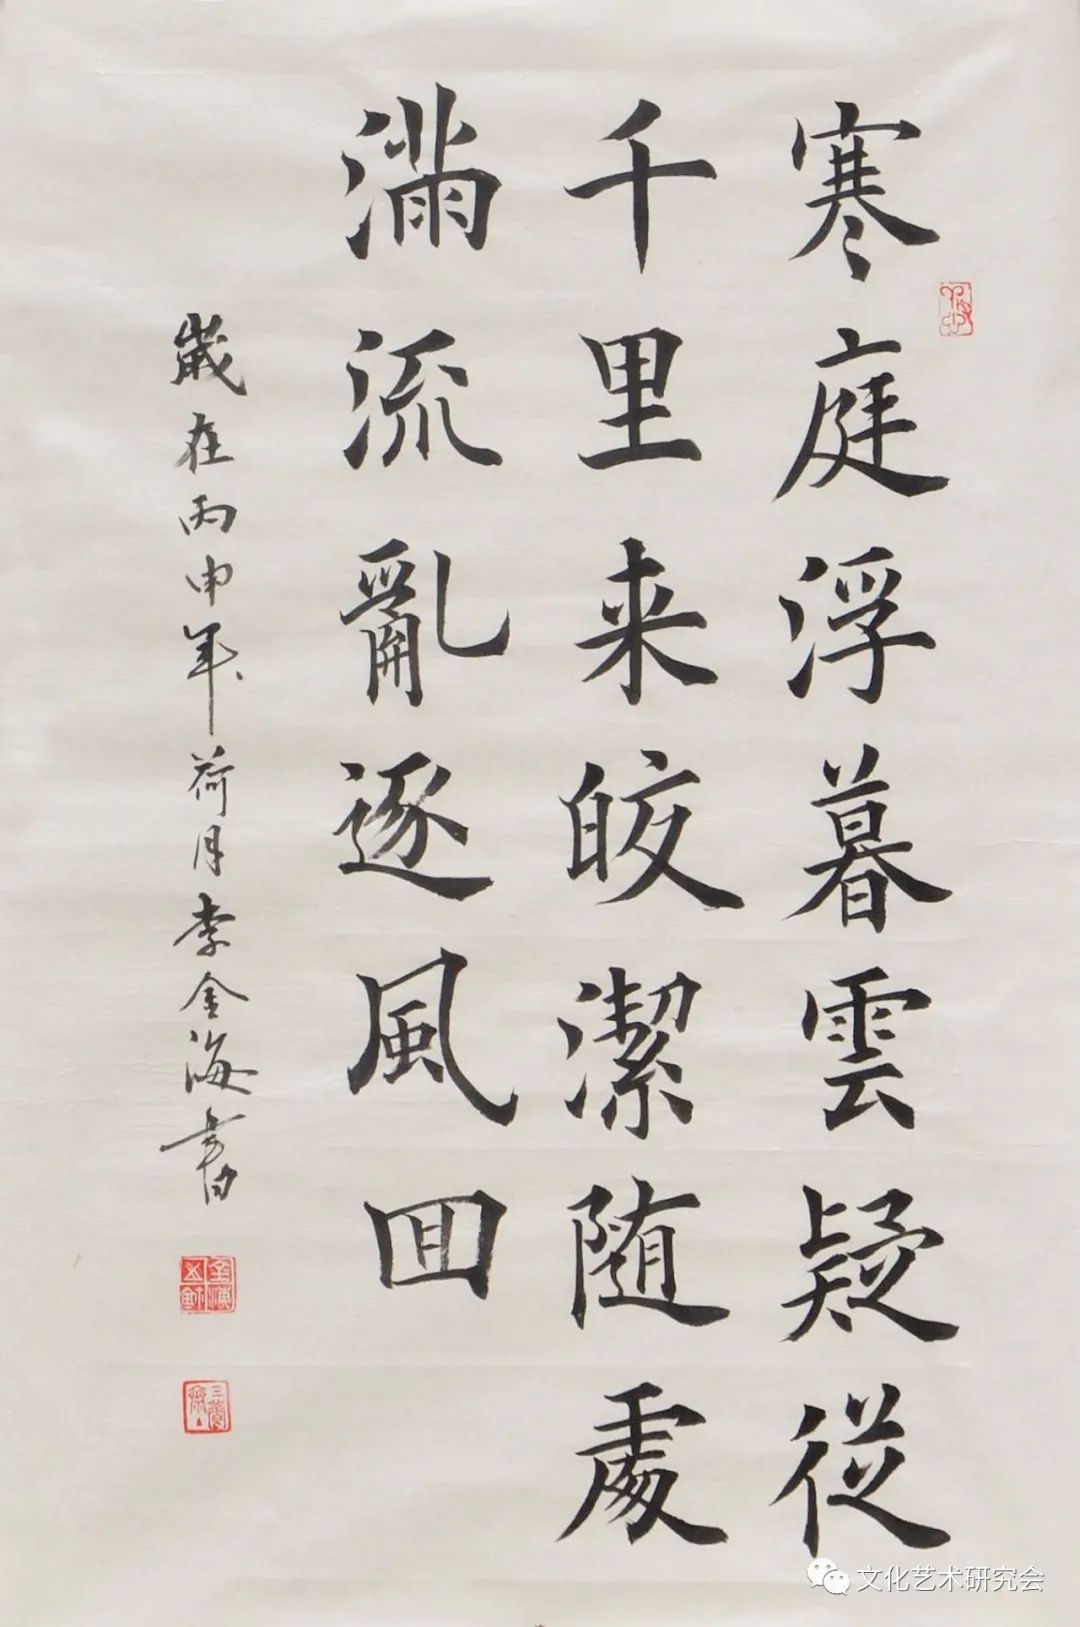 寒庭浮暮雲疑從
千里来皎潔随處
滿流亂逐風回
歲在丙申年荷月李金海書
文化艺术研究会